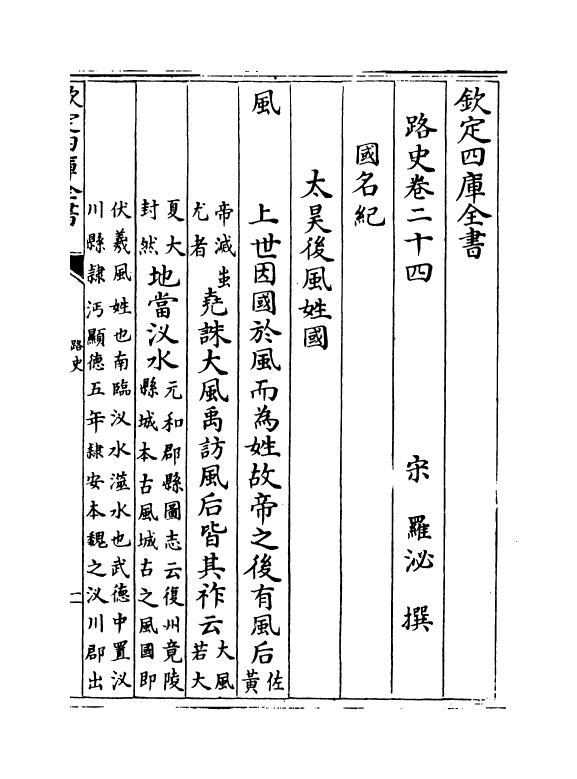 欽定四庫全書
路史卷二十四　宋　羅泌　撰
國名紀
太昊後風姓國
風　上世因國於風而為姓故帝之後有風后佐黃
帝滅蚩
尤者
堯誅大風禹訪風后皆其祚云
大風
若大
夏大
封然
地當汊水
元和郡縣圖志云復州竟陵
縣城本古風城古之風國即
伏羲風姓也南臨汊水澨水也武德中置汊
川縣隷沔顯德五年隷安本魏之汊川郡出
欽定四庫全書
路史